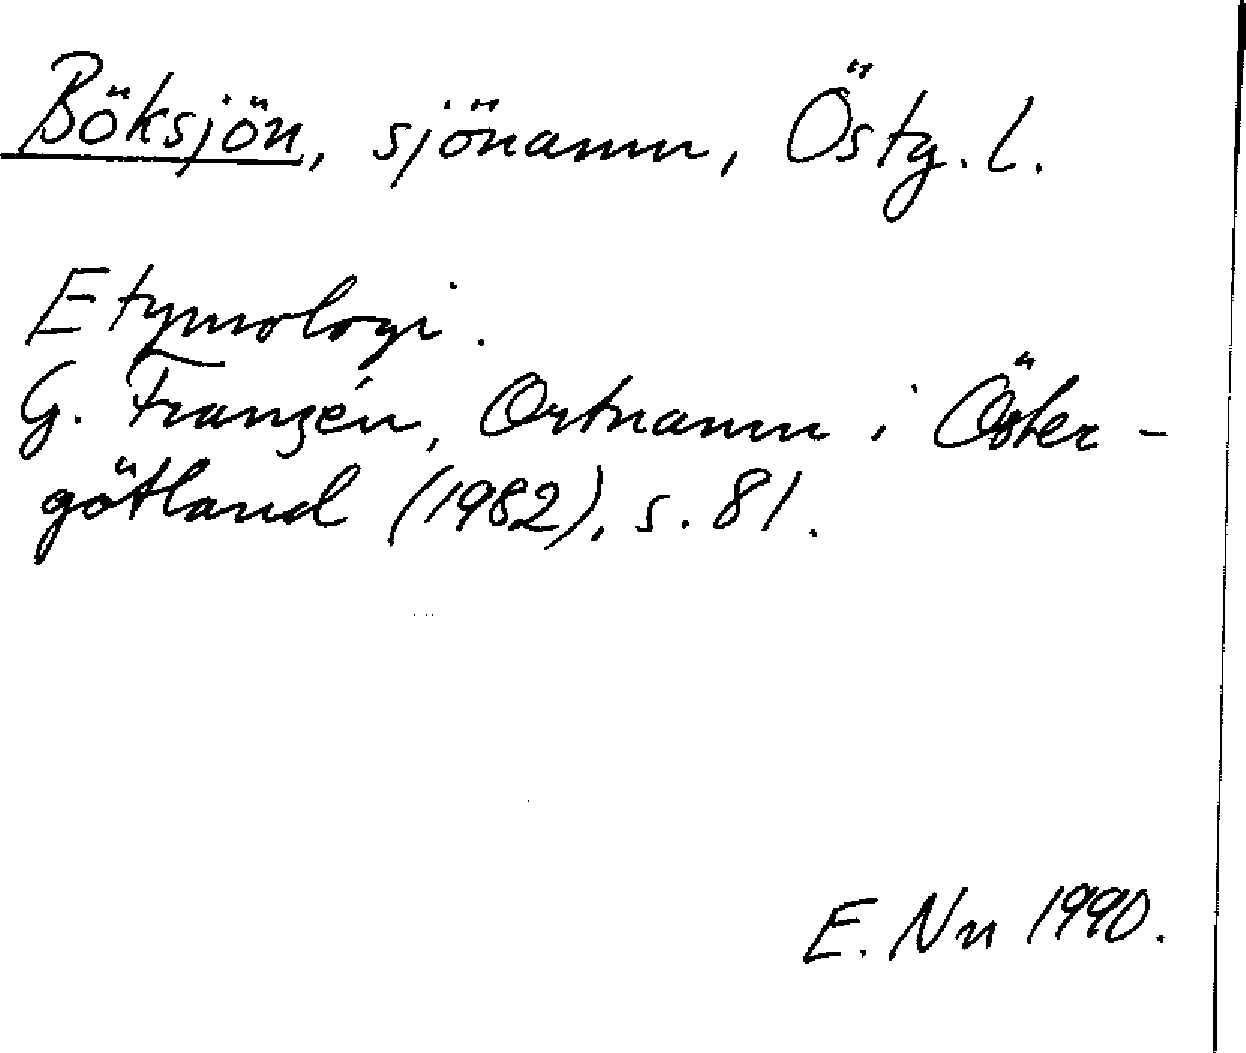 Böksjön, sjönamn, Östg. l.
Etymologi.
G. Franzén, Ortnamn i Öster-
götland (1982), s. 81.
E. Nn 1990.